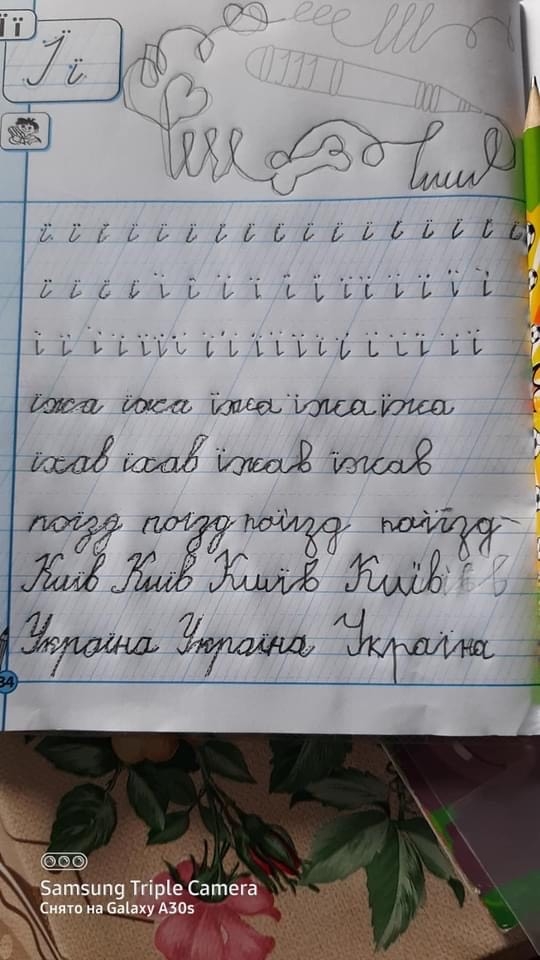 Її
Її
ї ї ї ї ї ї ї ї ї ї ї ї ї ї ї ї ї
ї ї ї ї ї ї ї ї ї ї її ї ї ї ї ї
ї ї ї ї ї ї ї ї ї ї ї ї ї ї ї ї ї ї ї ї
їжа їжа їжа їжа їжа
їхав їхав їжав їжав
поїзд поїзд поїзд
Київ Київ Київ Київ
Україна Україна Україна
34
Samsung Triple Camera
Снято на Galaxy A30s